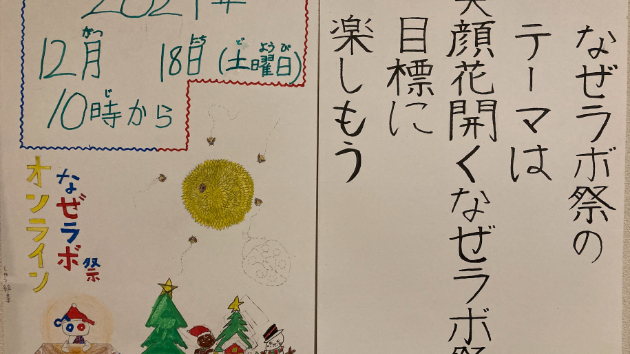 2021年
12月 18日(土曜日)
がつ にち どようび
10時から
じ
なぜラボ祭
オンライン
なぜラボ祭の
テーマは
笑顔花開くなぜラボ祭
目標に
楽しもう